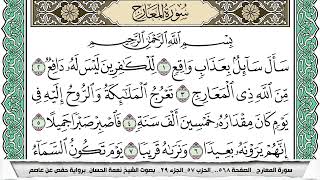 سُورَةُ الْمَعَارِجِ
بِسْمِ اللَّهِ الرَّحْمَٰنِ الرَّحِيمِ
سَأَلَ سَائِلٌ بِعَذَابٍ وَاقِعٍ ١ لِّلْكَافِرِينَ لَيْسَ لَهُ دَافِعٌ ٢
مِّنَ اللَّهِ ذِي الْمَعَارِجِ ٣ تَعْرُجُ الْمَلَائِكَةُ وَالرُّوحُ إِلَيْهِ فِي
يَوْمٍ كَانَ مِقْدَارُهُ خَمْسِينَ أَلْفَ سَنَةٍ ٤ فَاصْبِرْ صَبْرًا جَمِيلًا ٥
إِنَّهُمْ يَرَوْنَهُ بَعِيدًا ٦ وَنَرَاهُ قَرِيبًا ٧ يَوْمَ تَكُونُ السَّمَاءُ
سورة المعارج الصفحة الحزب ٥٧ الجزء ٢٩ بصوت الشيخ نعمة الحسان برواية حفص عن عاصم